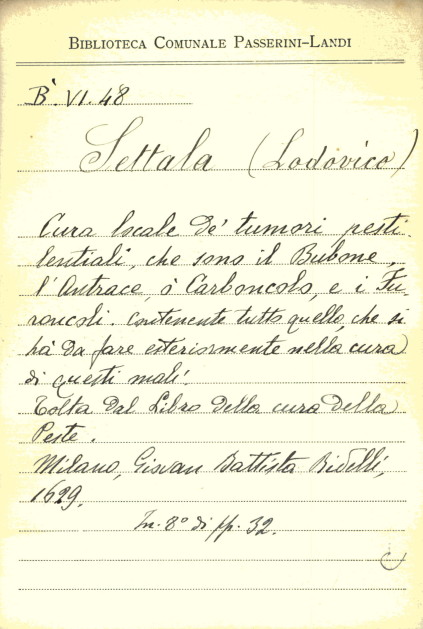 BIBLIOTECA COMUNALE PASSERINI-LANDI
B. VI. 48
Settala (Lodovico)
Cura locale de' tumori pesti-
lentiali, che sono il Bubone,
l'Antrace, ò Carboncolo, e i Fu-
roncoli. Contenente tutto quello, che si
hà da fare esteriormente nella cura
di questi mali.
Tolta dal Libro della cura della
Peste.
Milano, Giovan Battista Bidelli,
1629.
In. 8° di pp. 32.